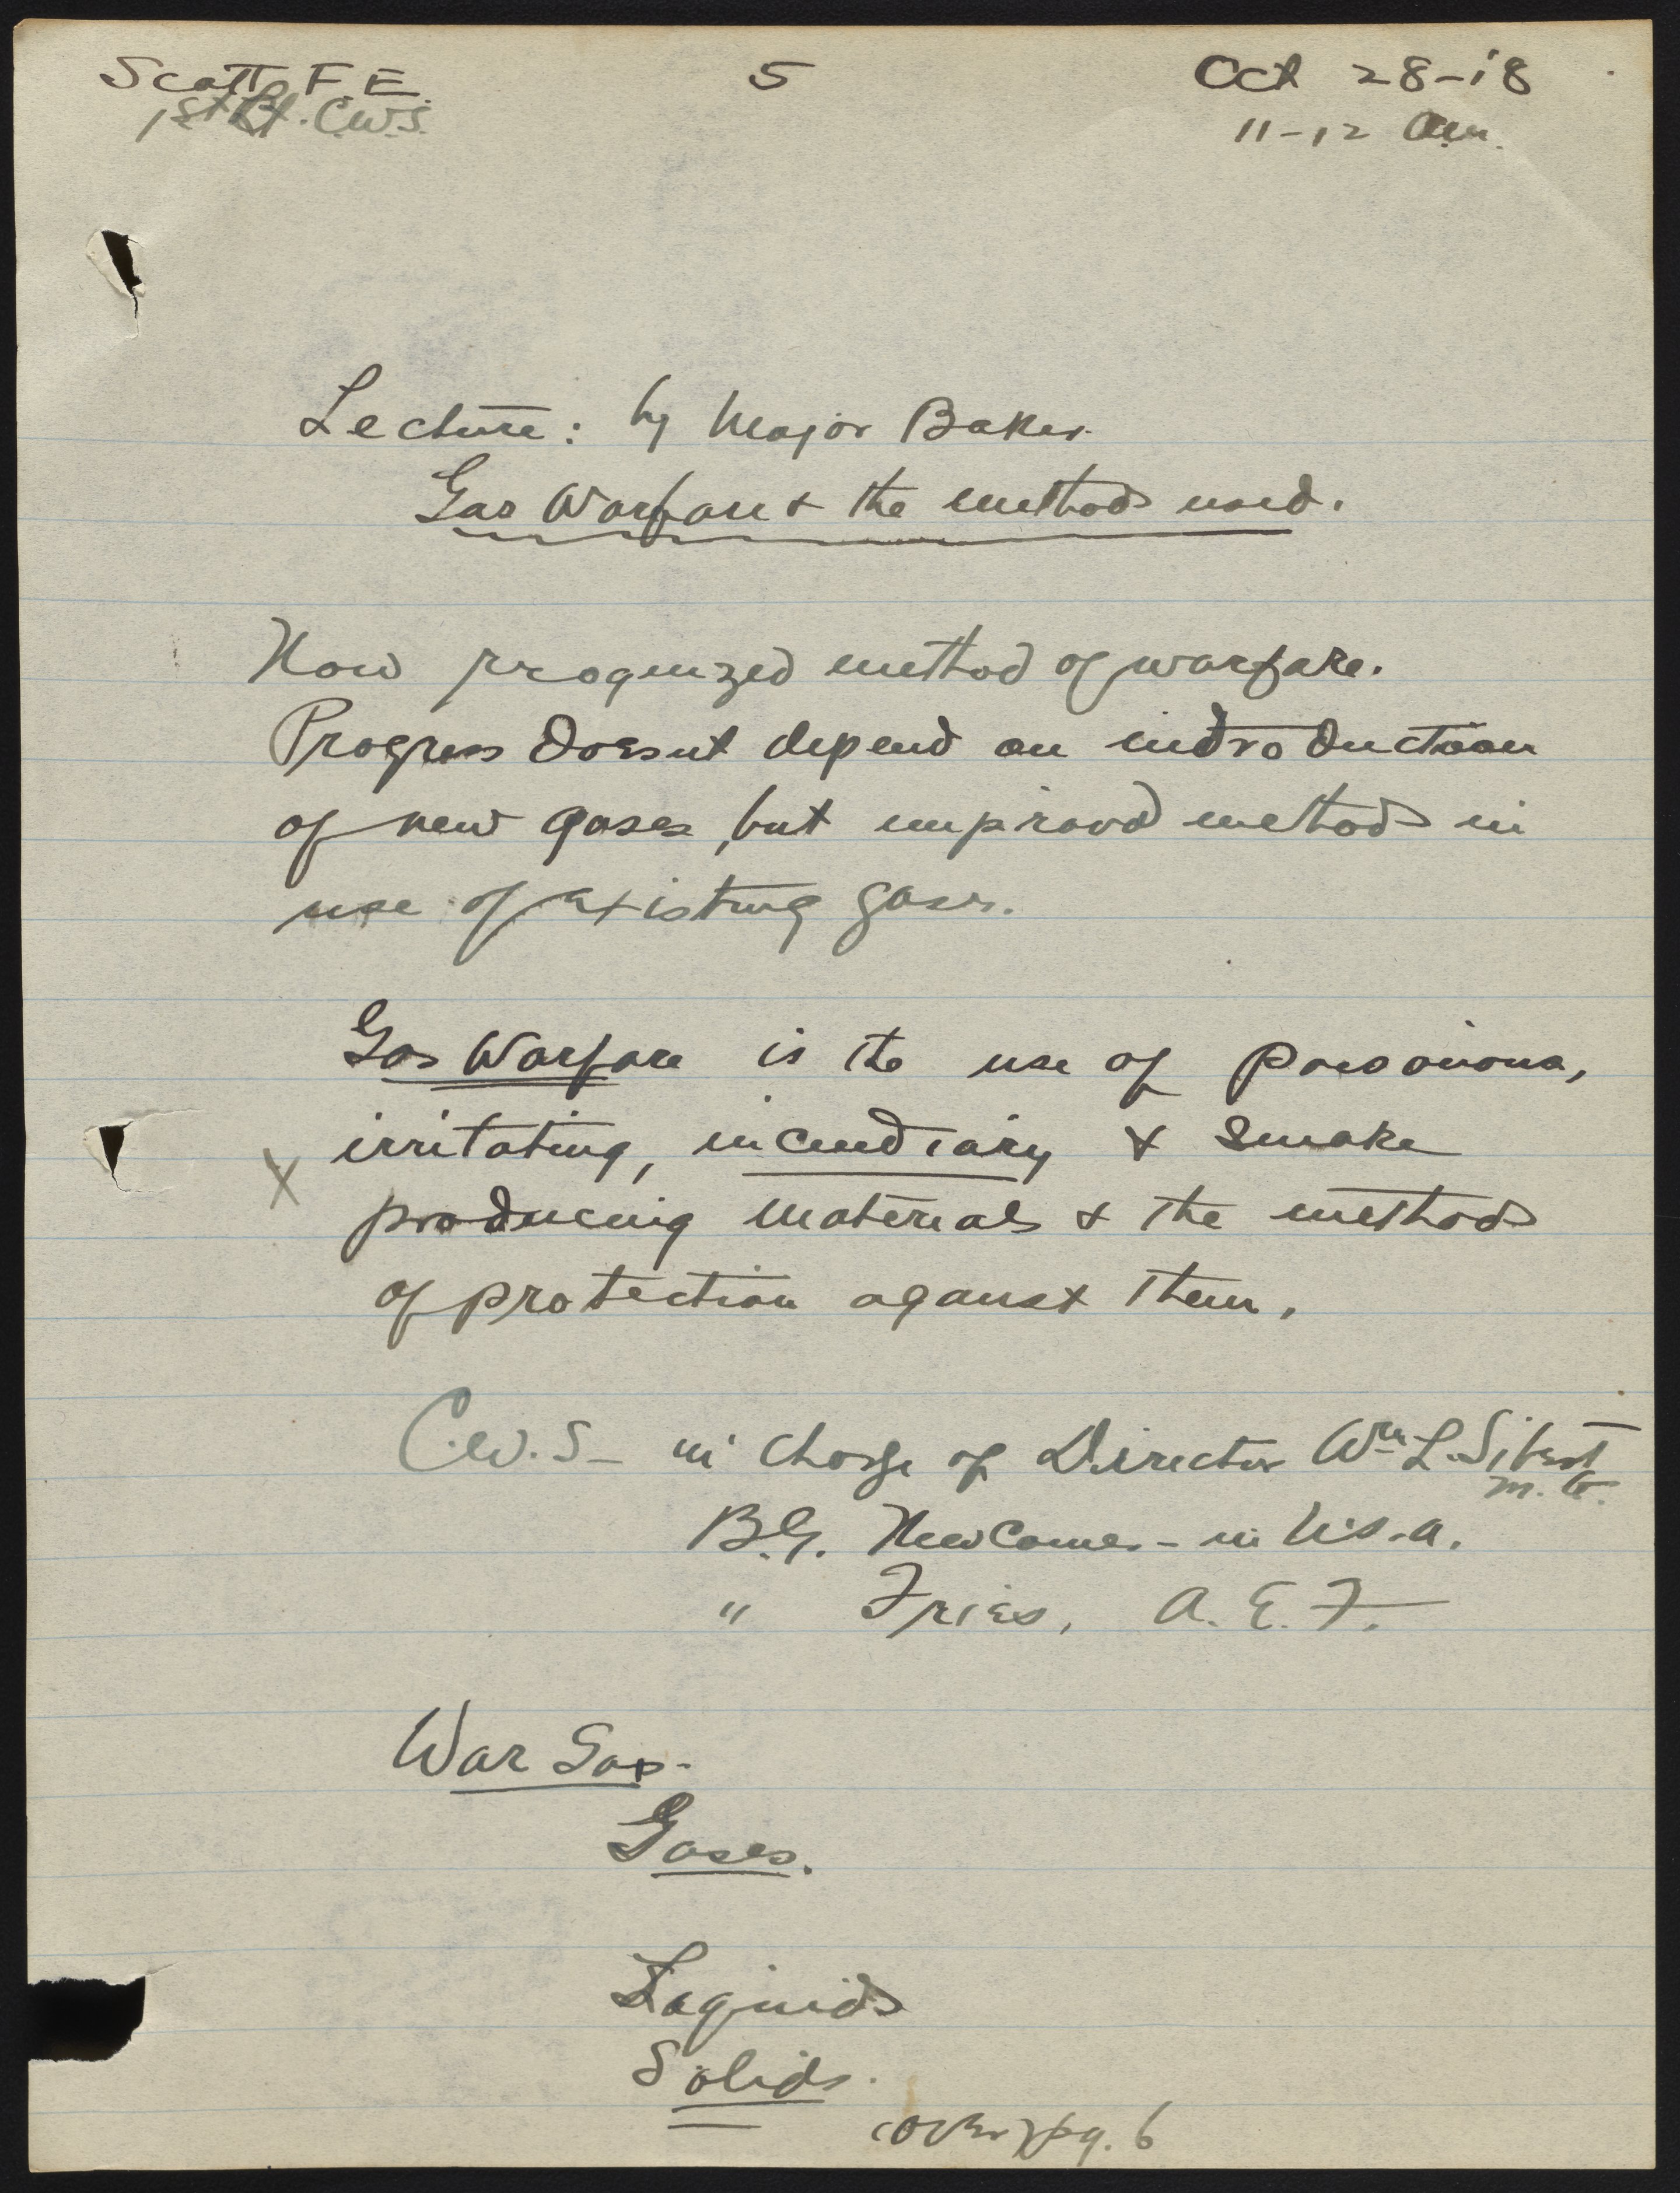 Scott F. E. 5 Oct 28-18
1st Lt. C.W.S. 11-12 am.
Lecture: by Major Baker
Gas Warfare & the methods used.
Now recognized method of warfare.
Progress doesn't depend on introduction
of new gases, but improved methods in
use of existing gases.
Gas Warfare is the use of poisonous,
X irritating, incendiary & smoke
producing materials & the methods
of protection against them.
C.W.S - in charge of Director Wm L. Sibert
M.G.
B.G. NewComer - in U.S.A.
" Fries, A.E.F.
War Gas-
Gases.
Liquids
Solids.
(over) pg. 6